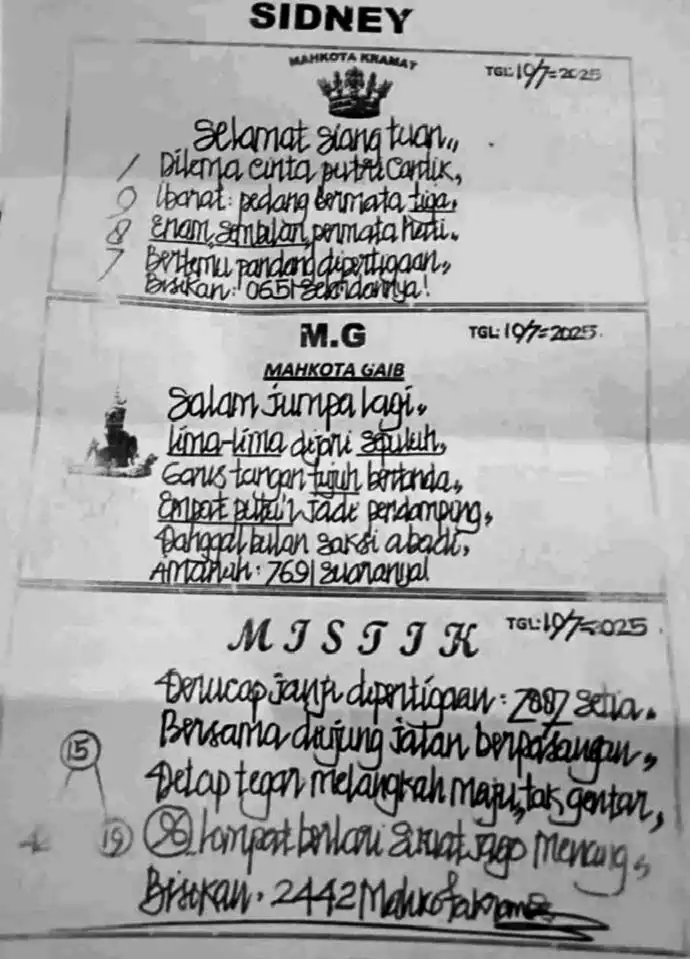 SIDNEY
MAHKOTA KRAMAT
TGL: 10/7=2025
Selamat siang tuan,,
1 Dilema cinta putri cantik,
9 Ibarat: pedang bermata tiga,
8 Enam, sembilan, permata hati.
7 Bertemu pandang dipertigaan,,
Bisikan: 0651 Selendangnya!
M.G
TGL: 10/7=2025.
MAHKOTA GAIB
Salam jumpa lagi,
Lima-lima dijari sepuluh,
Garis tangan tujuh bertanda,
Empat putri'n jade pendamping,
Panggal bulan saksi abadi,
Amanah: 7691 suaranya!
MISTIK
TGL: 10/7=2025.
Terucap janji dipertigaan: 7887 Setia.
Bersama diujung jalan berpasangan,,
15
Detap tegap melangkah maju, tak gentar,
4 19 96 Lompat berlari siasat jago menang,
Bisikan. 2442 Mahkota